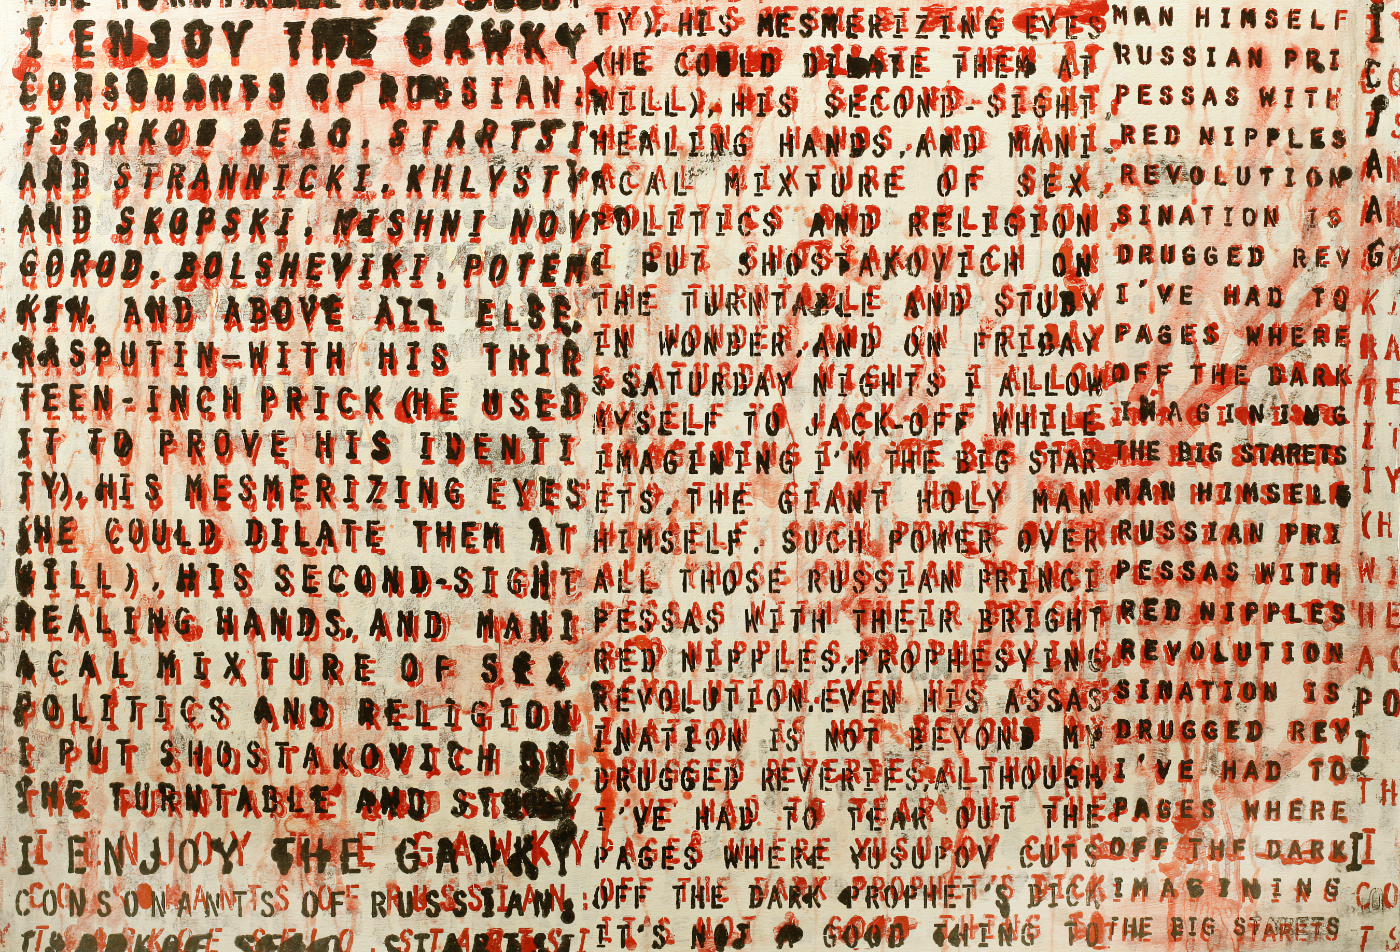 THE TURNTABLE AND STUDY
I ENJOY THE GAWKY
CONSONANTS OF RUSSIAN:
TSARKOE SELO, STARTSI
AND STRANNICKI, KHLYSTY
AND SKOPSKI, NISHNI NOV
GOROD, BOLSHEVIKI, POTEM
KIN, AND ABOVE ALL ELSE,
RASPUTIN-WITH HIS THIR
TEEN-INCH PRICK (HE USED
IT TO PROVE HIS IDENTI
TY), HIS MESMERIZING EYES
(HE COULD DILATE THEM AT
WILL), HIS SECOND-SIGHT
HEALING HANDS, AND MANI
ACAL MIXTURE OF SEX
POLITICS AND RELIGION
I PUT SHOSTAKOVICH ON
THE TURNTABLE AND STUDY
I ENJOY THE GAWKY
CONSONANTS OF RUSSIAN:
TY), HIS MESMERIZING EYES
(HE COULD DILATE THEM AT
WILL), HIS SECOND-SIGHT,
HEALING HANDS, AND MANI-
ACAL MIXTURE OF SEX,
POLITICS AND RELIGION,
I PUT SHOSTAKOVICH ON
THE TURNTABLE AND STUDY
IN WONDER, AND ON FRIDAY
& SATURDAY NIGHTS I ALLOW
MYSELF TO JACK-OFF WHILE
IMAGINING I'M THE BIG STAR
ETS, THE GIANT HOLY MAN
HIMSELF. SUCH POWER OVER
ALL THOSE RUSSIAN PRINCI
PESSAS WITH THEIR BRIGHT
RED NIPPLES, PROPHESYING
REVOLUTION. EVEN HIS ASSAS
INATION IS NOT BEYOND MY
DRUGGED REVERIES, ALTHOUGH
I'VE HAD TO TEAR OUT THE
PAGES WHERE YUSUPOV CUTS
OFF THE DARK PROPHET'S DICK
IT'S NOT A GOOD THING TO
MAN HIMSELF
RUSSIAN PRI
PESSAS WITH
RED NIPPLES
REVOLUTION
SINATION IS
DRUGGED REV
I'VE HAD TO
PAGES WHERE
OFF THE DARK
IMAGINING
THE BIG STARETS
MAN HIMSELF
RUSSIAN PRI
PESSAS WITH
RED NIPPLES
REVOLUTION
SINATION IS
DRUGGED REV
I'VE HAD TO
PAGES WHERE
OFF THE DARK
IMAGINING
THE BIG STARETS
I
CO
T
A
A
G
KI
RA
TE
IT
TY
(H
WI
HE
AC
PO
I
TH
I
CO
T